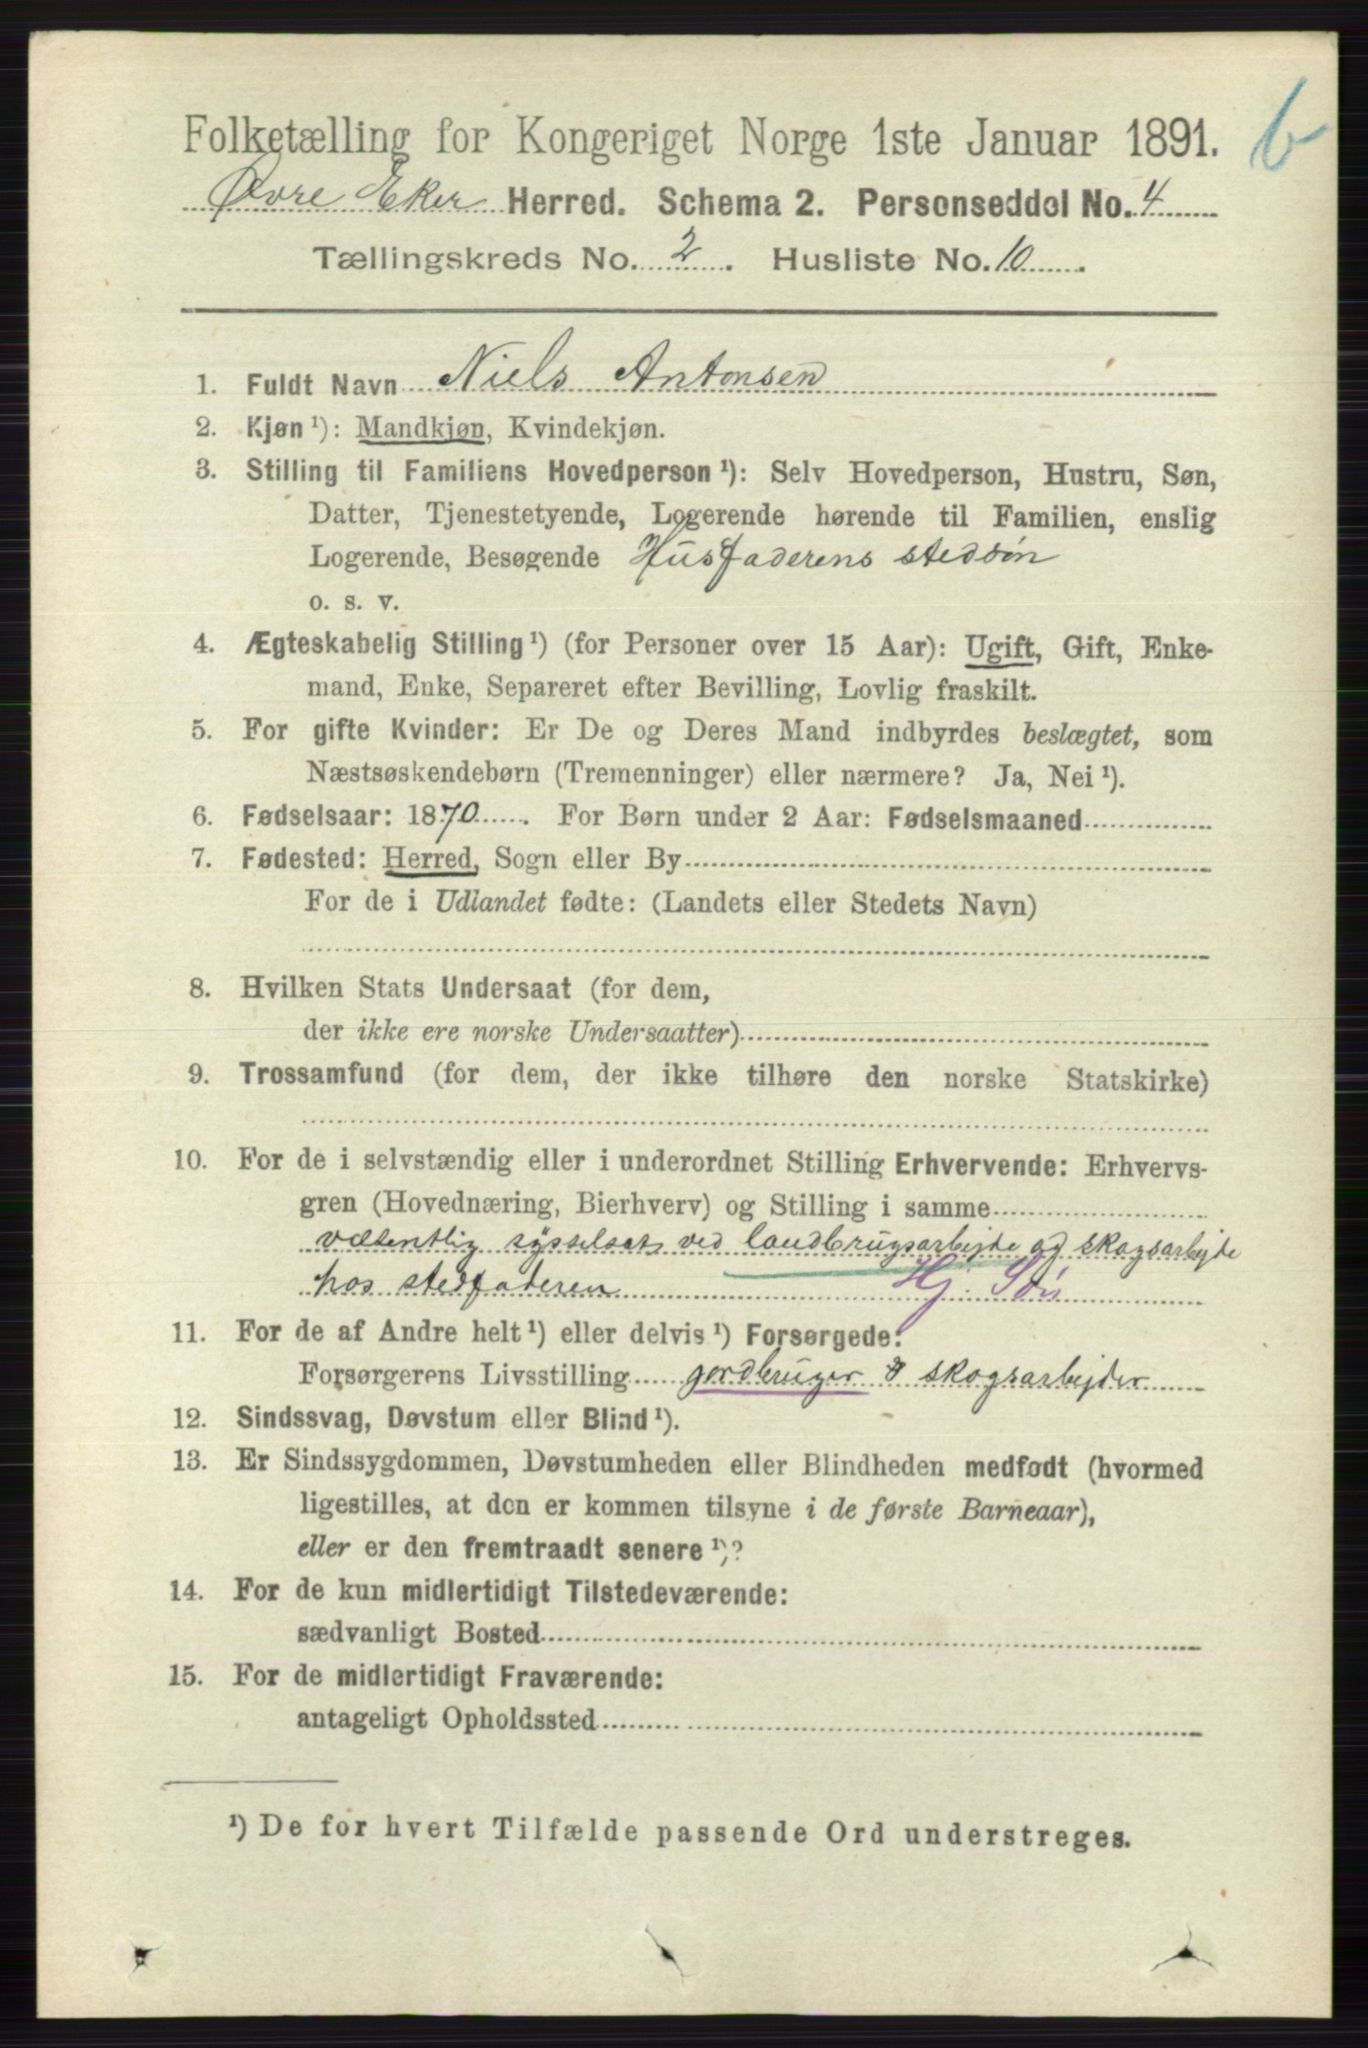 Folketælling for Kongeriget Norge 1ste Januar 1891.
b
Øvre Eker Herred. Schema 2. Personseddel No. 4
Tællingskreds No. 2. Husliste No. 10.
1. Fuldt Navn Niels Antonsen
2. Kjøn ¹): Mandkjøn, Kvindekjøn.
3. Stilling til Familiens Hovedperson ¹): Selv Hovedperson, Hustru, Søn,
Datter, Tjenestetyende, Logerende hørende til Familien, enslig
Logerende, Besøgende Husfaderens stedsøn
o. s. v.
4. Ægteskabelig Stilling ¹) (for Personer over 15 Aar): Ugift, Gift, Enke-
mand, Enke, Separeret efter Bevilling, Lovlig fraskilt.
5. For gifte Kvinder: Er De og Deres Mand indbyrdes beslægtet, som
Næstsøskendebørn (Tremenninger) eller nærmere? Ja, Nei ¹).
6. Fødselsaar: 1870. For Børn under 2 Aar: Fødselsmaaned
7. Fødested: Herred, Sogn eller By
For de i Udlandet fødte: (Landets eller Stedets Navn)
8. Hvilken Stats Undersaat (for dem,
der ikke ere norske Undersaatter)
9. Trossamfund (for dem, der ikke tilhøre den norske Statskirke)
10. For de i selvstændig eller i underordnet Stilling Erhvervende: Erhvervs-
gren (Hovednæring, Bierhverv) og Stilling i samme
væsentlig sysselsat ved landbrugsarbejde og skogsarbejde
hos stedfaderen Hj. Søn
11. For de af Andre helt ¹) eller delvis ¹) Forsørgede:
Forsørgerens Livsstilling gordbruger & skogsarbejder
12. Sindssvag, Døvstum eller Blind ¹).
13. Er Sindssygdommen, Døvstumheden eller Blindheden medfødt (hvormed
ligestilles, at den er kommen tilsyne i de første Barneaar),
eller er den fremtraadt senere ¹)?
14. For de kun midlertidigt Tilstedeværende:
sædvanligt Bosted
15. For de midlertidigt Fraværende:
antageligt Opholdssted
¹) De for hvert Tilfælde passende Ord understreges.